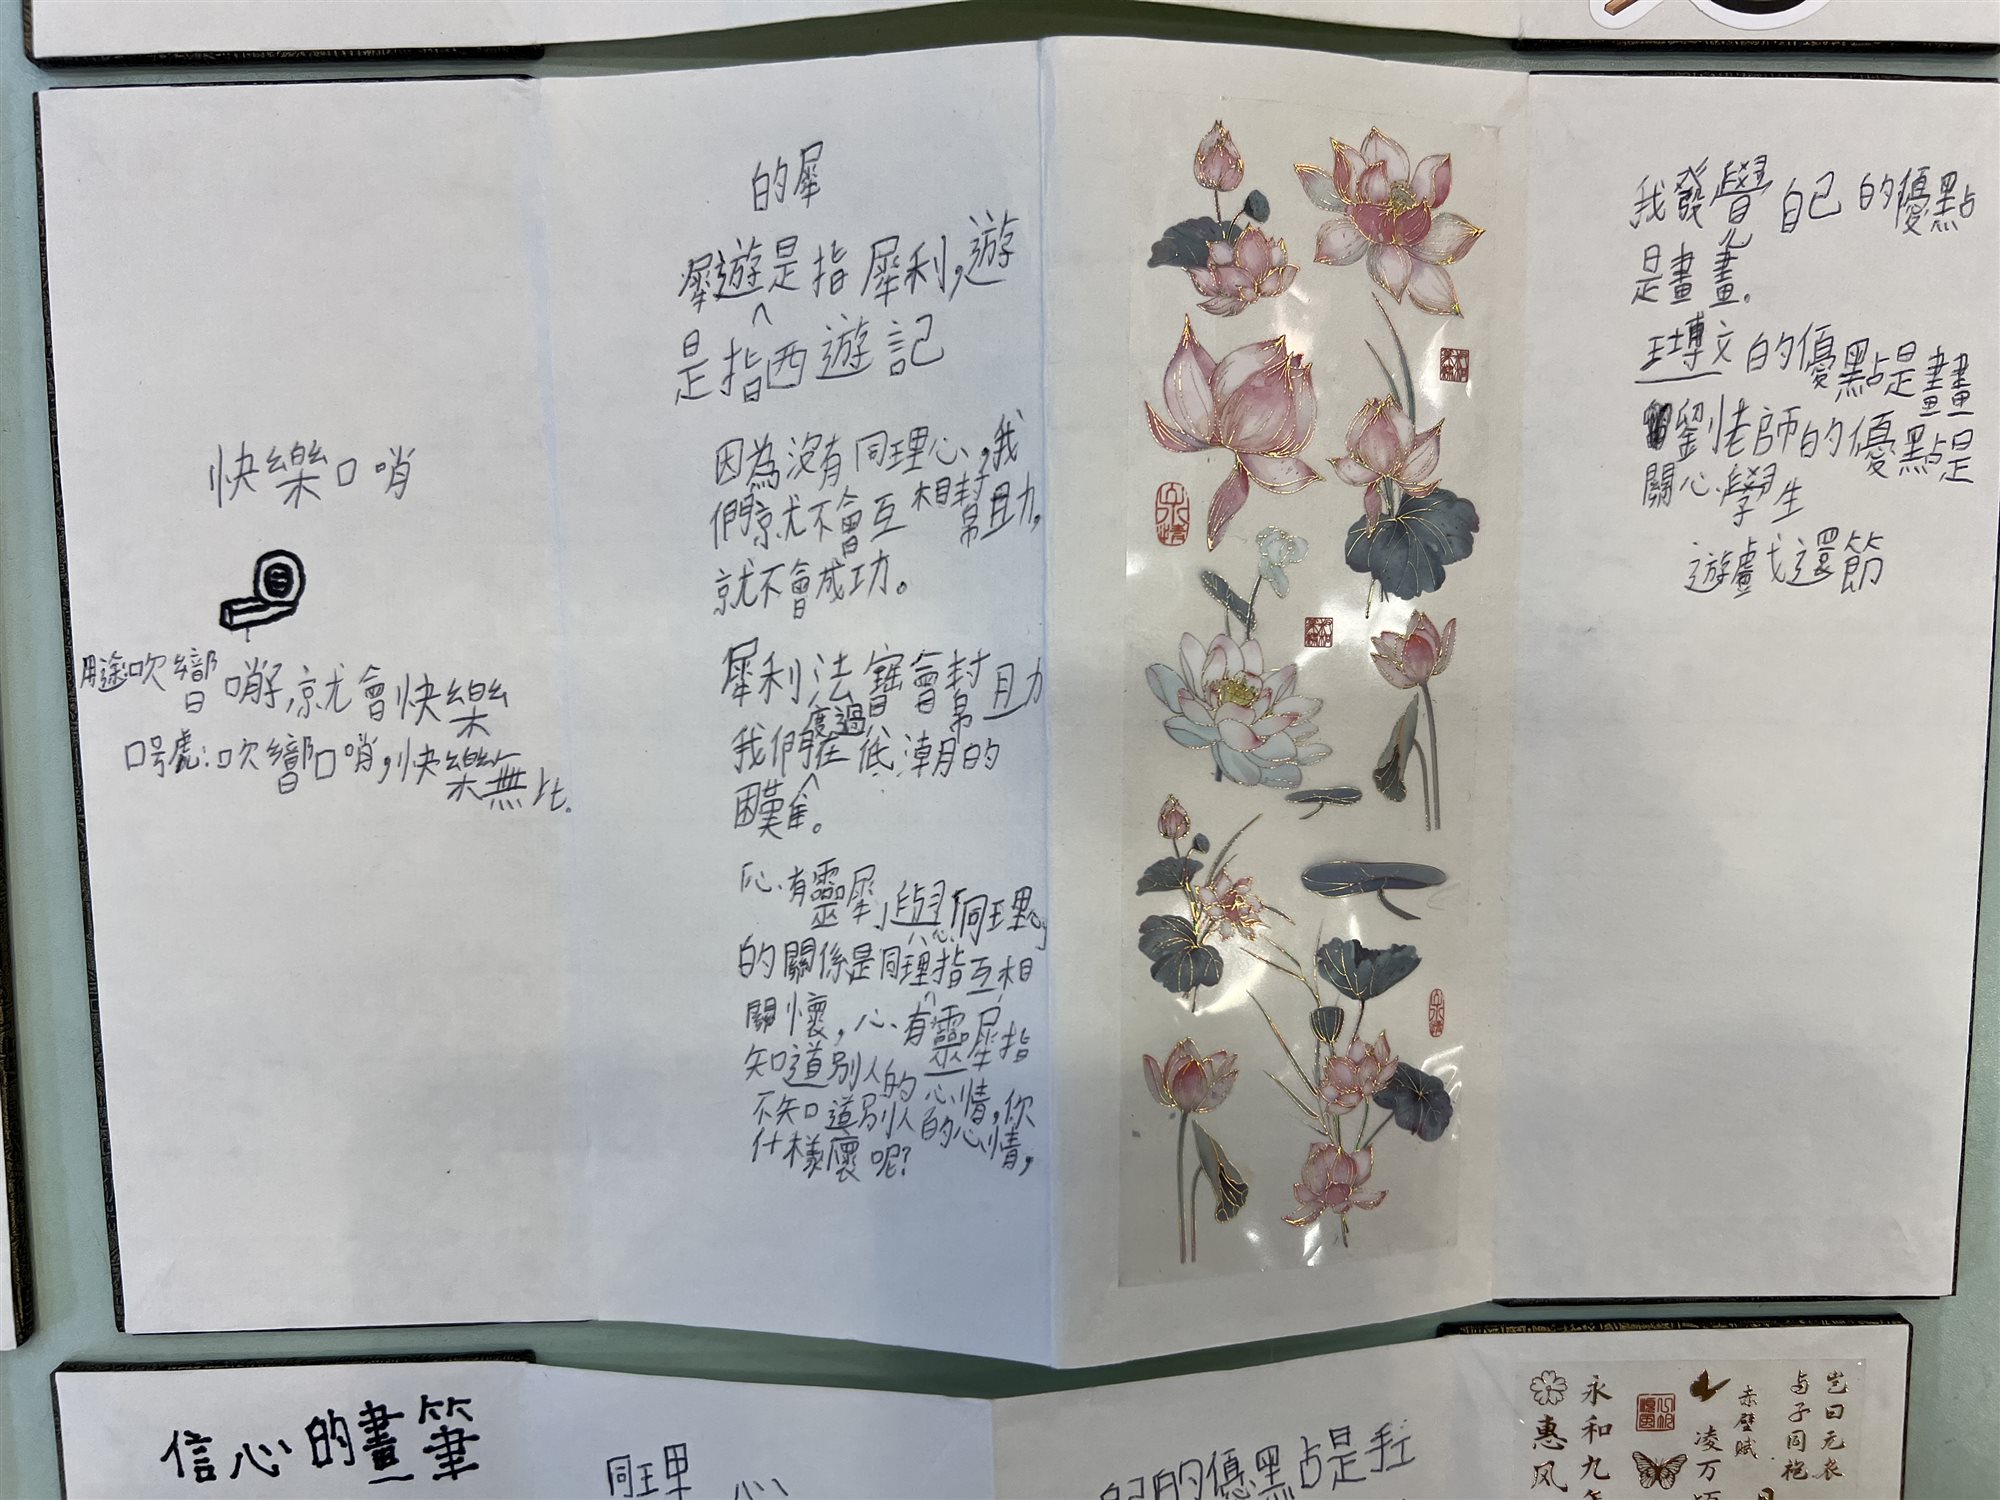 快樂口哨
用途:吹響哨子,就會快樂
口號:吹響口哨,快樂無比。
的犀
犀遊是指犀利,遊
是指西遊記
因為沒有同理心,我
們就不會互相幫助,
就不會成功。
犀利法寶會幫助
度過
我們在低潮的
困難。
「心有靈犀」與「同理心」
的關係是同理心指互相
關懷,心有靈犀指
知道別人的心情,你
不知道別人的心情,
什樣懷呢?
我發覺自己的優點
是畫畫。
王博文的優點是畫畫
劉老師的優點是
關心學生
遊戲還節
信心的畫筆
同理心
的優點是手工
永和九年
惠风
赤壁赋
凌万顷
岂曰无衣
与子同袍